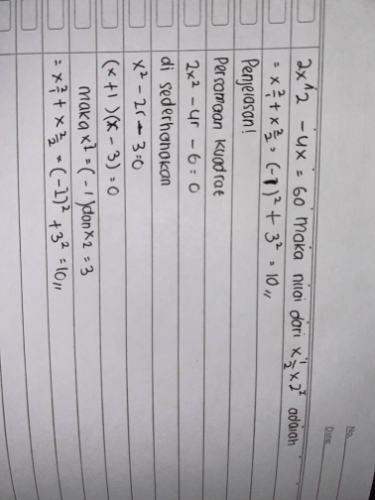 No.
Date:
2x^2 - 4x = 60 maka nilai dari x½¹ x 2² adalah
= x₁² + x₂² = (-1)² + 3² = 10,,
Penjelasan!
Persamaan kuadrat
2x² - 4r - 6 = 0
di sederhanakan
x² - 2r - 3 = 0
(x+1)(x - 3) = 0
maka x1 = (-1) dan x2 = 3
= x₁² + x₂² = (-1)² + 3² = 10,,